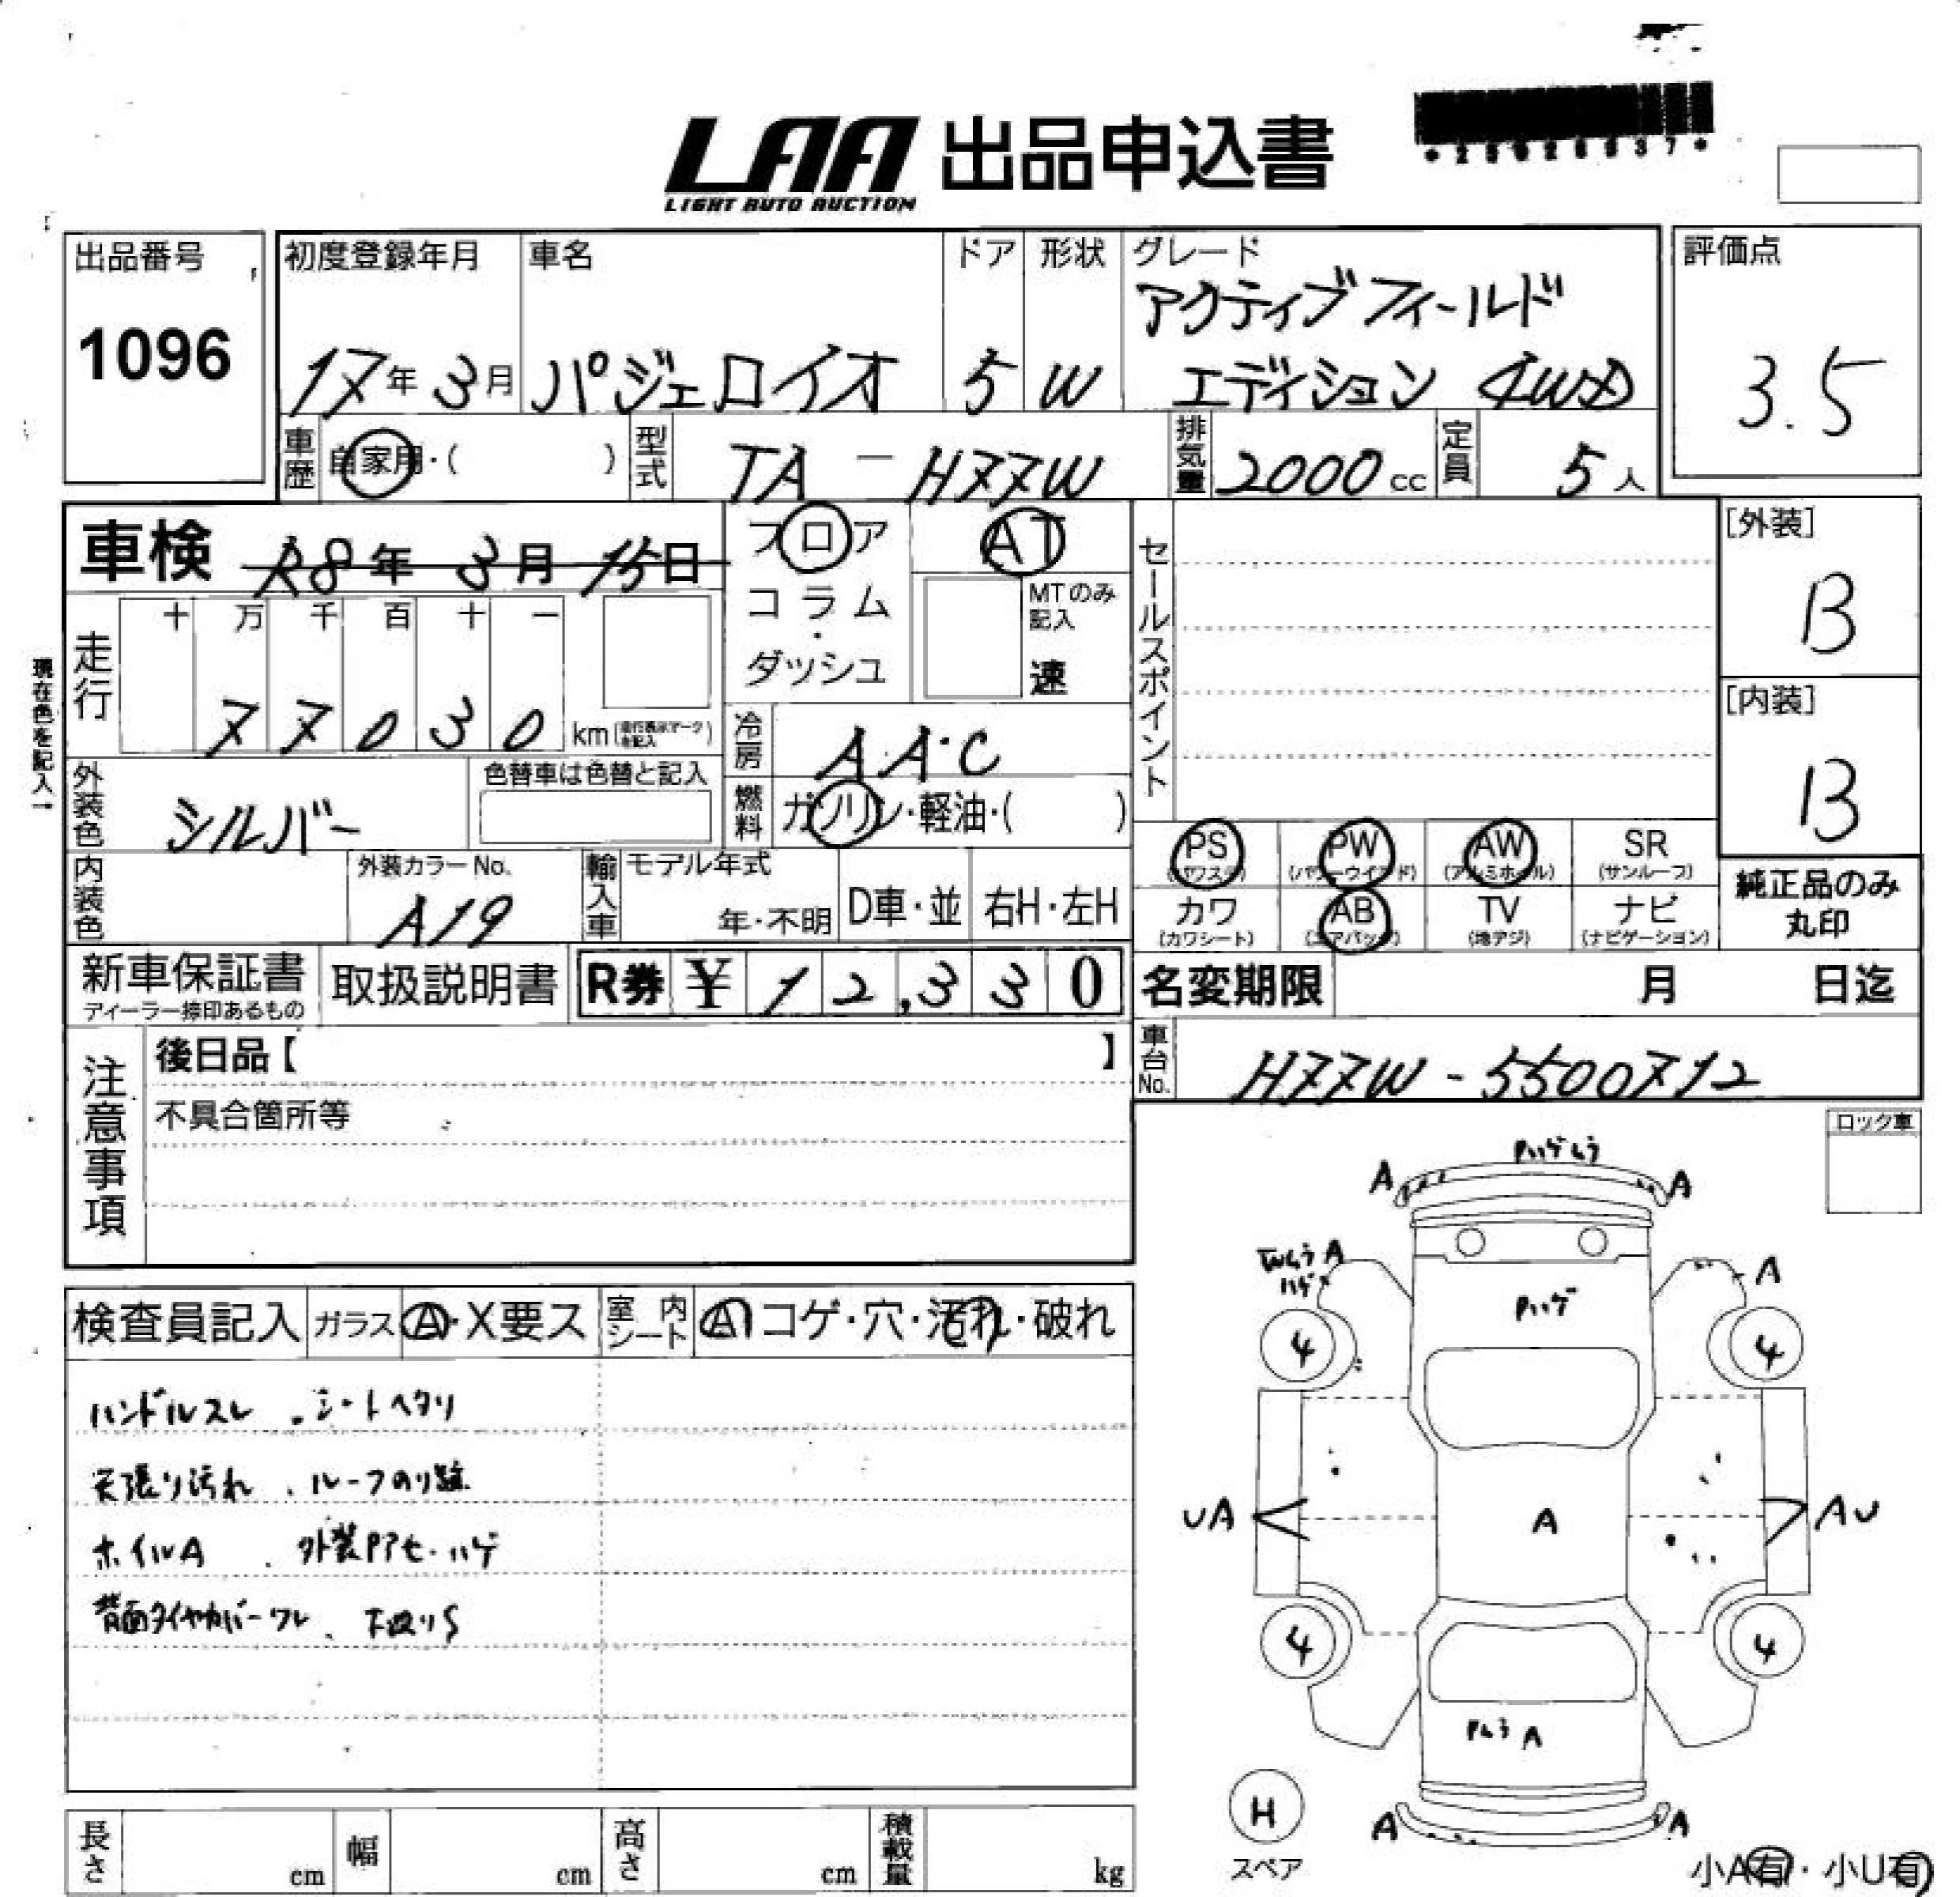 LAA 出品申込書
LIGHT AUTO AUCTION
出品番号
1096
初度登録年月
17年 3月
車名
パジェロイオ
ドア
5
形状
W
グレード
アクティブフィールド
エディション 4WD
評価点
3.5
車歴
自家用・( )
型式
TA-H77W
排気量
2000cc
定員
5人
車検 R8年 3月 15日
フロア
コラム
・
ダッシュ
AT
MTのみ
記入
速
セールスポイント
[外装]
B
[内装]
B
現在色を記入→
走行
十 万 千 百 十 一
7 7 0 3 0 km
冷房
AA・C
燃料
ガソリン・軽油・( )
外装色
シルバー
色替車は色替と記入
内装色
外装カラーNo.
A19
輸入車
モデル年式
年・不明
D車・並
右H・左H
PS PW AW SR
(パワステ) (パワーウインドド) (アルミホイル) (サンルーフ)
カワ AB TV ナビ
(カワシート) (エアバッグ) (地デジ) (ナビゲーション)
純正品のみ
丸印
新車保証書
ディーラー捺印あるもの
取扱説明書
R券 ¥ 12,330
名変期限 月 日迄
車台No.
H77W-5500712
注意事項
後日品【 】
不具合箇所等
ロック車
検査員記入
ガラス
A・X要ス
室内シート
A コゲ・穴・汚れ・破れ
ハンドルスレ 、シートヘタリ
天張り汚れ 、ルーフのり跡
ホイルA 、外装Pアセ・ハゲ
背面タイヤカバーワレ 、下廻りS
Pハゲムラ
A A
Wムラ A
ハゲ
A
Pハゲ
4 4
UA
A
AU
4 4
Pムラ A
H
スペア
A A
小A有・小U有
長さ cm
幅 cm
高さ cm
積載量 kg